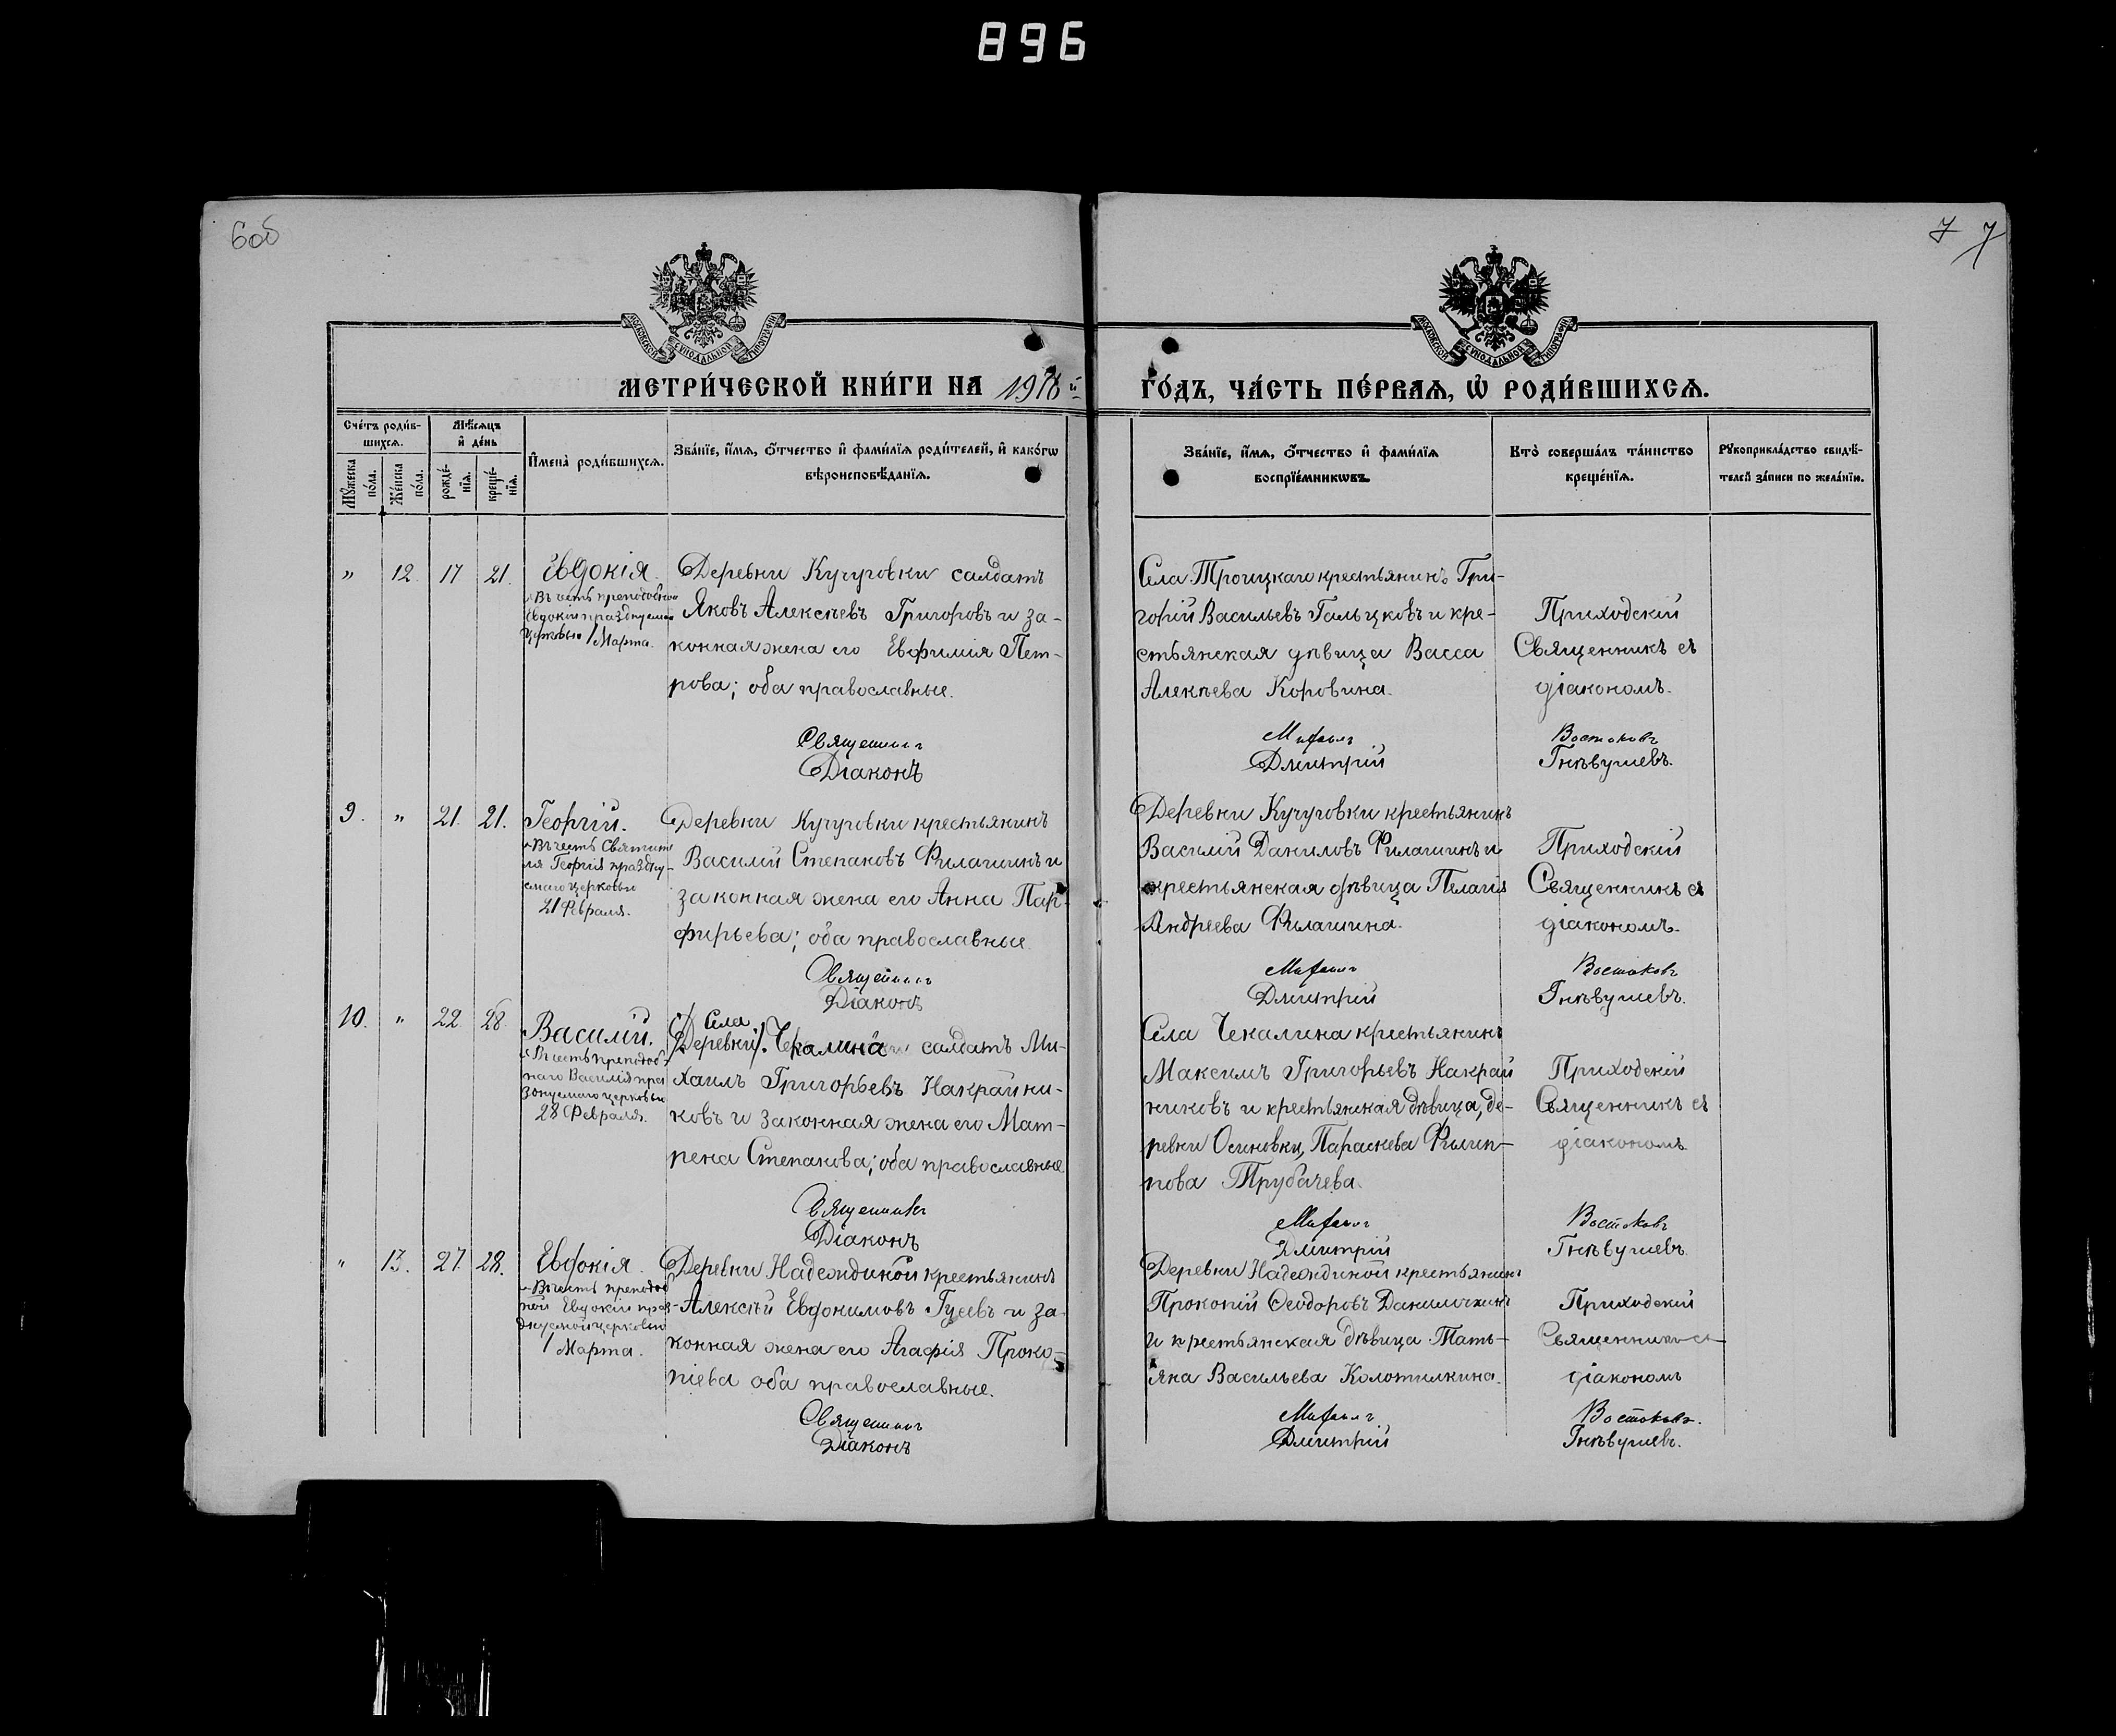 896
6об
7 7
МОСКОВСКОЙ СѴНОДАЛЬНОЙ ТИПОГРАФІИ
МОСКОВСКОЙ СѴНОДАЛЬНОЙ ТИПОГРАФІИ
МЕТРИ́ЧЕСКОЙ КНИ́ГИ НА 1918й
ГО́ДЪ, ЧА́СТЬ ПЕ́РВАѦ, Ѡ҆ РОДИ́ВШИХСѦ.
Сче́тъ роди́в-
шихсѧ.
Мѣ́сѧцъ
и҆ де́нь
Мꙋ́жеска
по́ла.
Же́нска
по́ла.
рожде́-
нїѧ.
креще́-
нїѧ.
И҆мена̀ роди́вшихсѧ.
Зва́нїе, и҆́мѧ, ѻ҆́тчество и҆ фами́лїѧ роди́телей, и҆ како́гѡ
вѣроисповѣ́данїѧ.
Зва́нїе, и҆́мѧ, ѻ҆́тчество и҆ фами́лїѧ
воспрїе́мникѡвъ.
Кто̀ соверша́лъ та́инство
креще́нїѧ.
Рꙋкоприкла́дство свидѣ́-
телей за́писи по жела́нїю.
" 12. 17 21. Евдокія.
Въ честь преподобной
Евдокіи празднуемой
Церковью 1 Марта.
Деревни Кучуровки салдатъ
Яковъ Алексѣевъ Григоровъ и за-
конная жена его Евфимія Пет-
рова; оба православные.
Священникъ
Діаконъ
Села Троицкаго крестьянинъ Гри-
горій Васильевъ Гальцковъ и кре-
стьянская дѣвица Васса
Алекѣева Коровина.
Михаилъ
Дмитрій
Приходскій
Священникъ съ
діакономъ.
Востоковъ
Гнѣвушевъ.
9. " 21. 21. Георгій.
Въ честь Святите
ля Георгія праздну-
емаго церковью
21 Февраля.
Деревни Кучуровки крестьянинъ
Василій Степановъ Филашинъ и
законная жена его Анна Пар-
фирьева; оба православные
Священникъ
Діаконъ
Деревни Кучуровки крестьянинъ
Василій Даниловъ Филашинъ и
крестьянская дѣвица Пелагія
Андреева Филашина.
Михаилъ
Дмитрій
Приходскій
Священникъ съ
діакономъ.
Востоковъ
Гнѣвушевъ.
10. " 22. 28. Василій.
Въ честь преподоб-
наго Василія праз
днуемаго церковью
28 Февраля.
Села
/Деревни/. Чекалина салдатъ Ми-
хаилъ Григорьевъ Накрайни-
ковъ и законная жена его Мат-
рена Степанова; оба православные
Священникъ
Діаконъ
Села Чекалина крестьянинъ
Максимъ Григорьевъ Накрай
никовъ и крестьянская дѣвица, де-
ревни Осиновки, Параскева Филип-
пова Трубачева.
Михаилъ
Дмитрій
Приходскій
Священникъ съ
діакономъ
Востоковъ
Гнѣвушевъ
" 13. 27. 28. Евдокія.
Въ честь преподоб
ной Евдокіи праз-
днуемой церковью
1 Марта.
Деревни Надеждиной крестьянинъ
Алексѣй Евдокимовъ Гусевъ и за-
конная жена его Агафія Проко-
піева оба православные.
Священникъ
Діаконъ
Деревни Надеждиной крестьянинъ
Прокопій Ѳеодоровъ Данилочкинъ
и крестьянская дѣвица Тать-
яна Васильева Колотилкина.
Михаилъ
Дмитрій
Приходскій
Священникъ съ
діакономъ
Востоковъ.
Гнѣвушевъ.